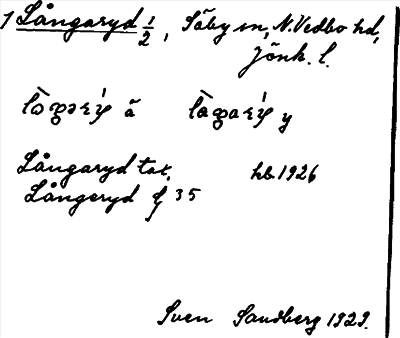 1 Långaryd 1/2, Säby sn, N. Vedbo hd,
Jönk. l.
ä y
Långaryd tax. hb. 1926
Långeryd G 35
Sven Sandberg 1929.